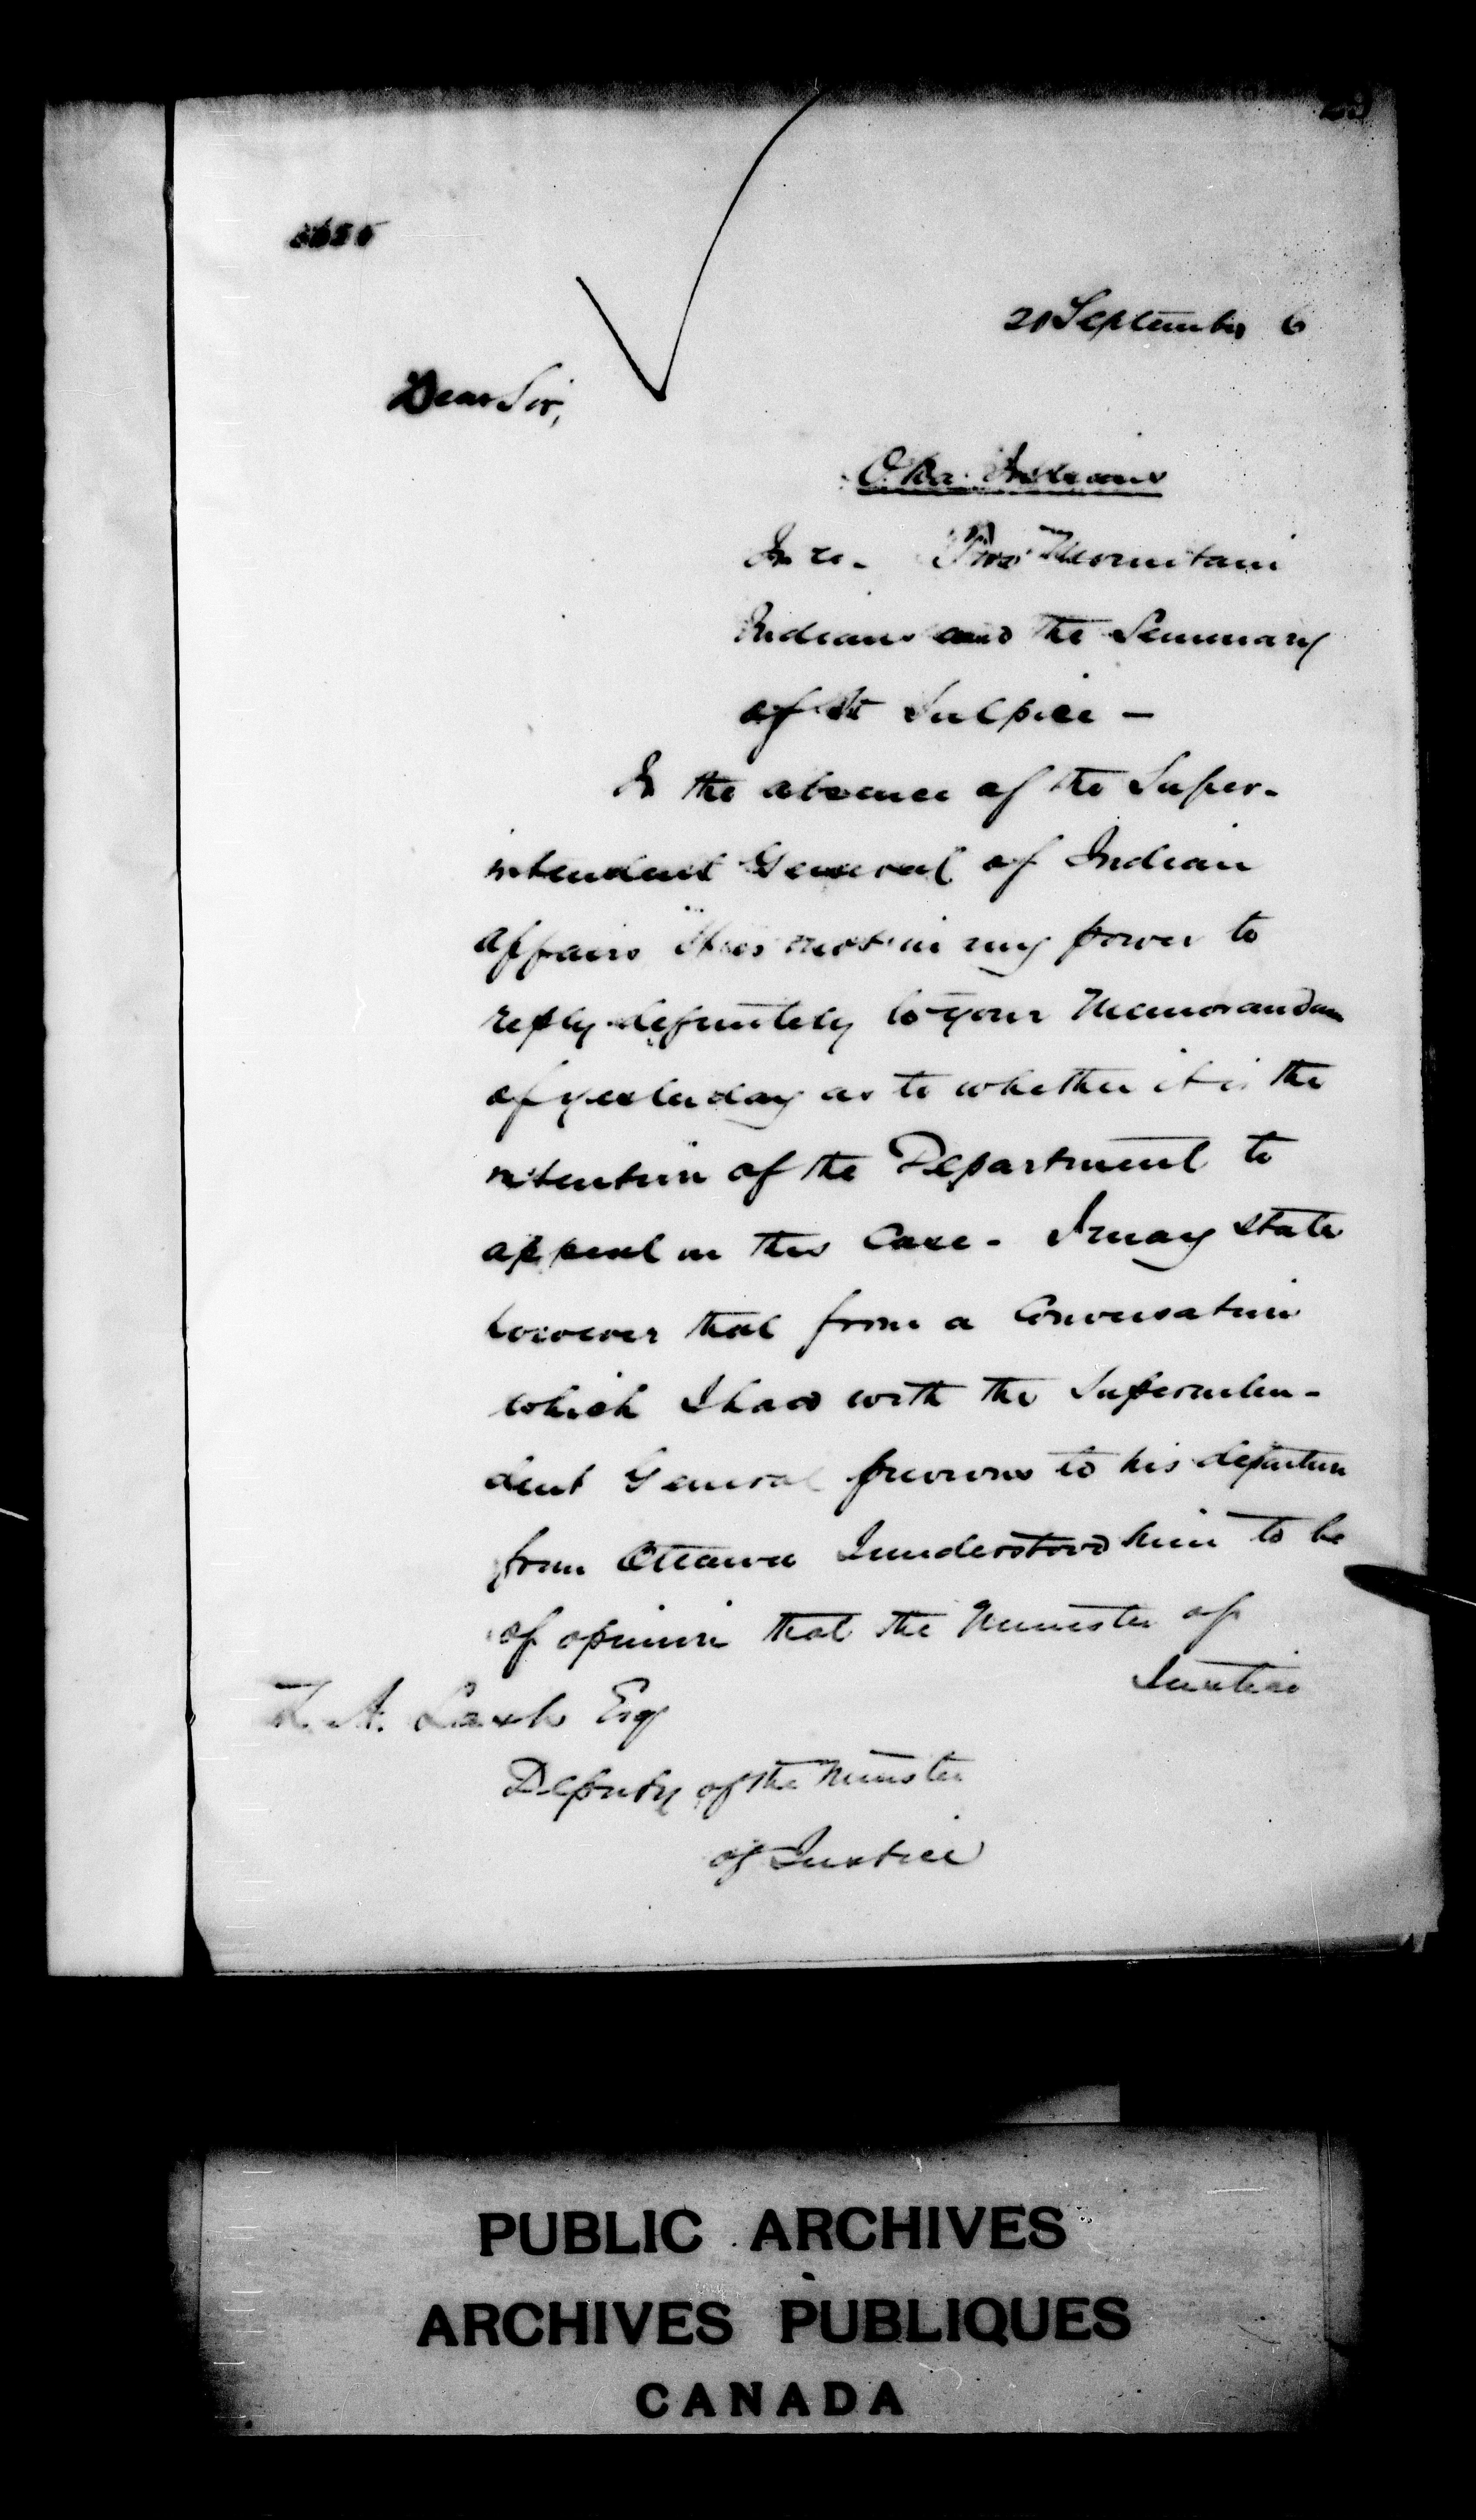 21 September 6
Dear Sir,
Oka Indians
In re. Two Mountain
Indians and the Seminary
of St Sulpice —
In the absence of the Super-
intendent General of Indian
affairs it is not in my power to
reply definitely to your Memorandum
of yesterday as to whether it is the
intention of the Department to
appeal in this Case - I may state
however that from a Conversation
which I had with the Superinten-
dent General previous to his departure
from Ottawa I understood him to be
of opinion that the Minister of
Justice
Z. A. Lash Esq
Deputy of the Minister
of Justice
PUBLIC ARCHIVES
ARCHIVES PUBLIQUES
CANADA